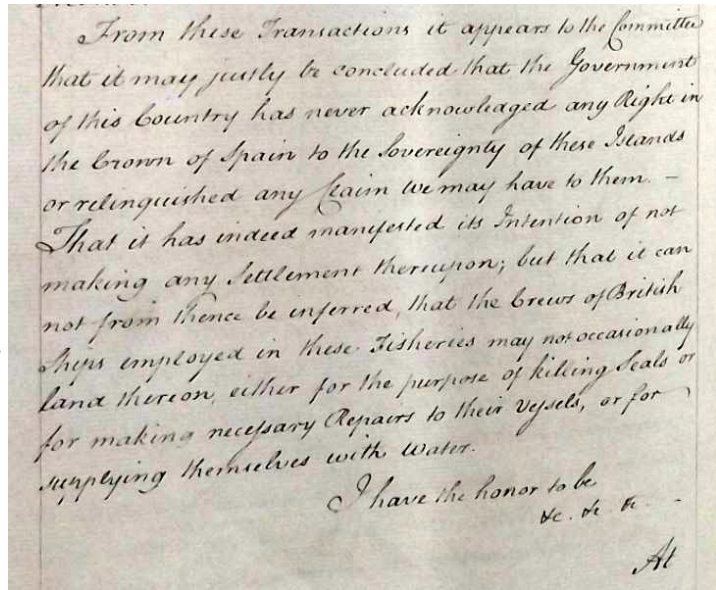 From these Transactions it appears to the Committee
that it may justly be concluded that the Government
of this Country has never acknowledged any Right in
the Crown of Spain to the Sovereignty of these Islands
or relinquished any Claim we may have to them. –
That it has indeed manifested its Intention of not
making any Settlement thereupon; but that it can
not from thence be inferred, that the Crews of British
Ships employed in these Fisheries may not occasionally
land thereon, either for the purpose of killing Seals or
for making necessary Repairs to their Vessels, or for
supplying themselves with Water.
I have the honor to be
&c. &c. &c. –
At